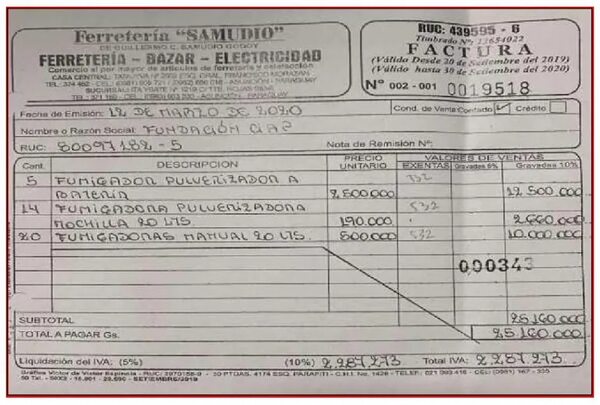 Ferretería "SAMUDIO"
DE GUILLERMO C. SAMUDIO GODOY
FERRETERÍA - BAZAR - ELECTRICIDAD
Comercio al por mayor de artículos de ferretería y calefacción
RUC: 439595 - 6
Timbrado N°: 13654922
FACTURA
(Válido Desde 20 de Setiembre del 2019)
(Válido hasta 30 de Setiembre del 2020)
N° 002 - 001 0019518
Fecha de Emisión: 12 DE MARZO DE 2020
Cond. de Venta Contado ✓ Crédito
Nombre o Razón Social: FUNDACIÓN CIAP
RUC: 80097182 - 5 Nota de Remisión N°:
Cant. DESCRIPCION PRECIO UNITARIO VALORES DE VENTAS
EXENTAS Gravadas 5% Gravadas 10%
5 FUMIGADOR PULVERIZADOR A 532
BATERIA 2 500000 12 500 000
14 FUMIGADORA PULVERIZADORA 532
MOCHILA 20 LTS 190.000 2660.000
20 FUMIGADORAS MANUAL 20 LTS. 500000 532 10.000.000
000343
SUBTOTAL 25.160.000
TOTAL A PAGAR Gs. 25.160.000
Liquidación del IVA: (5%) (10%) 2.287.273 Total IVA: 2.287.273